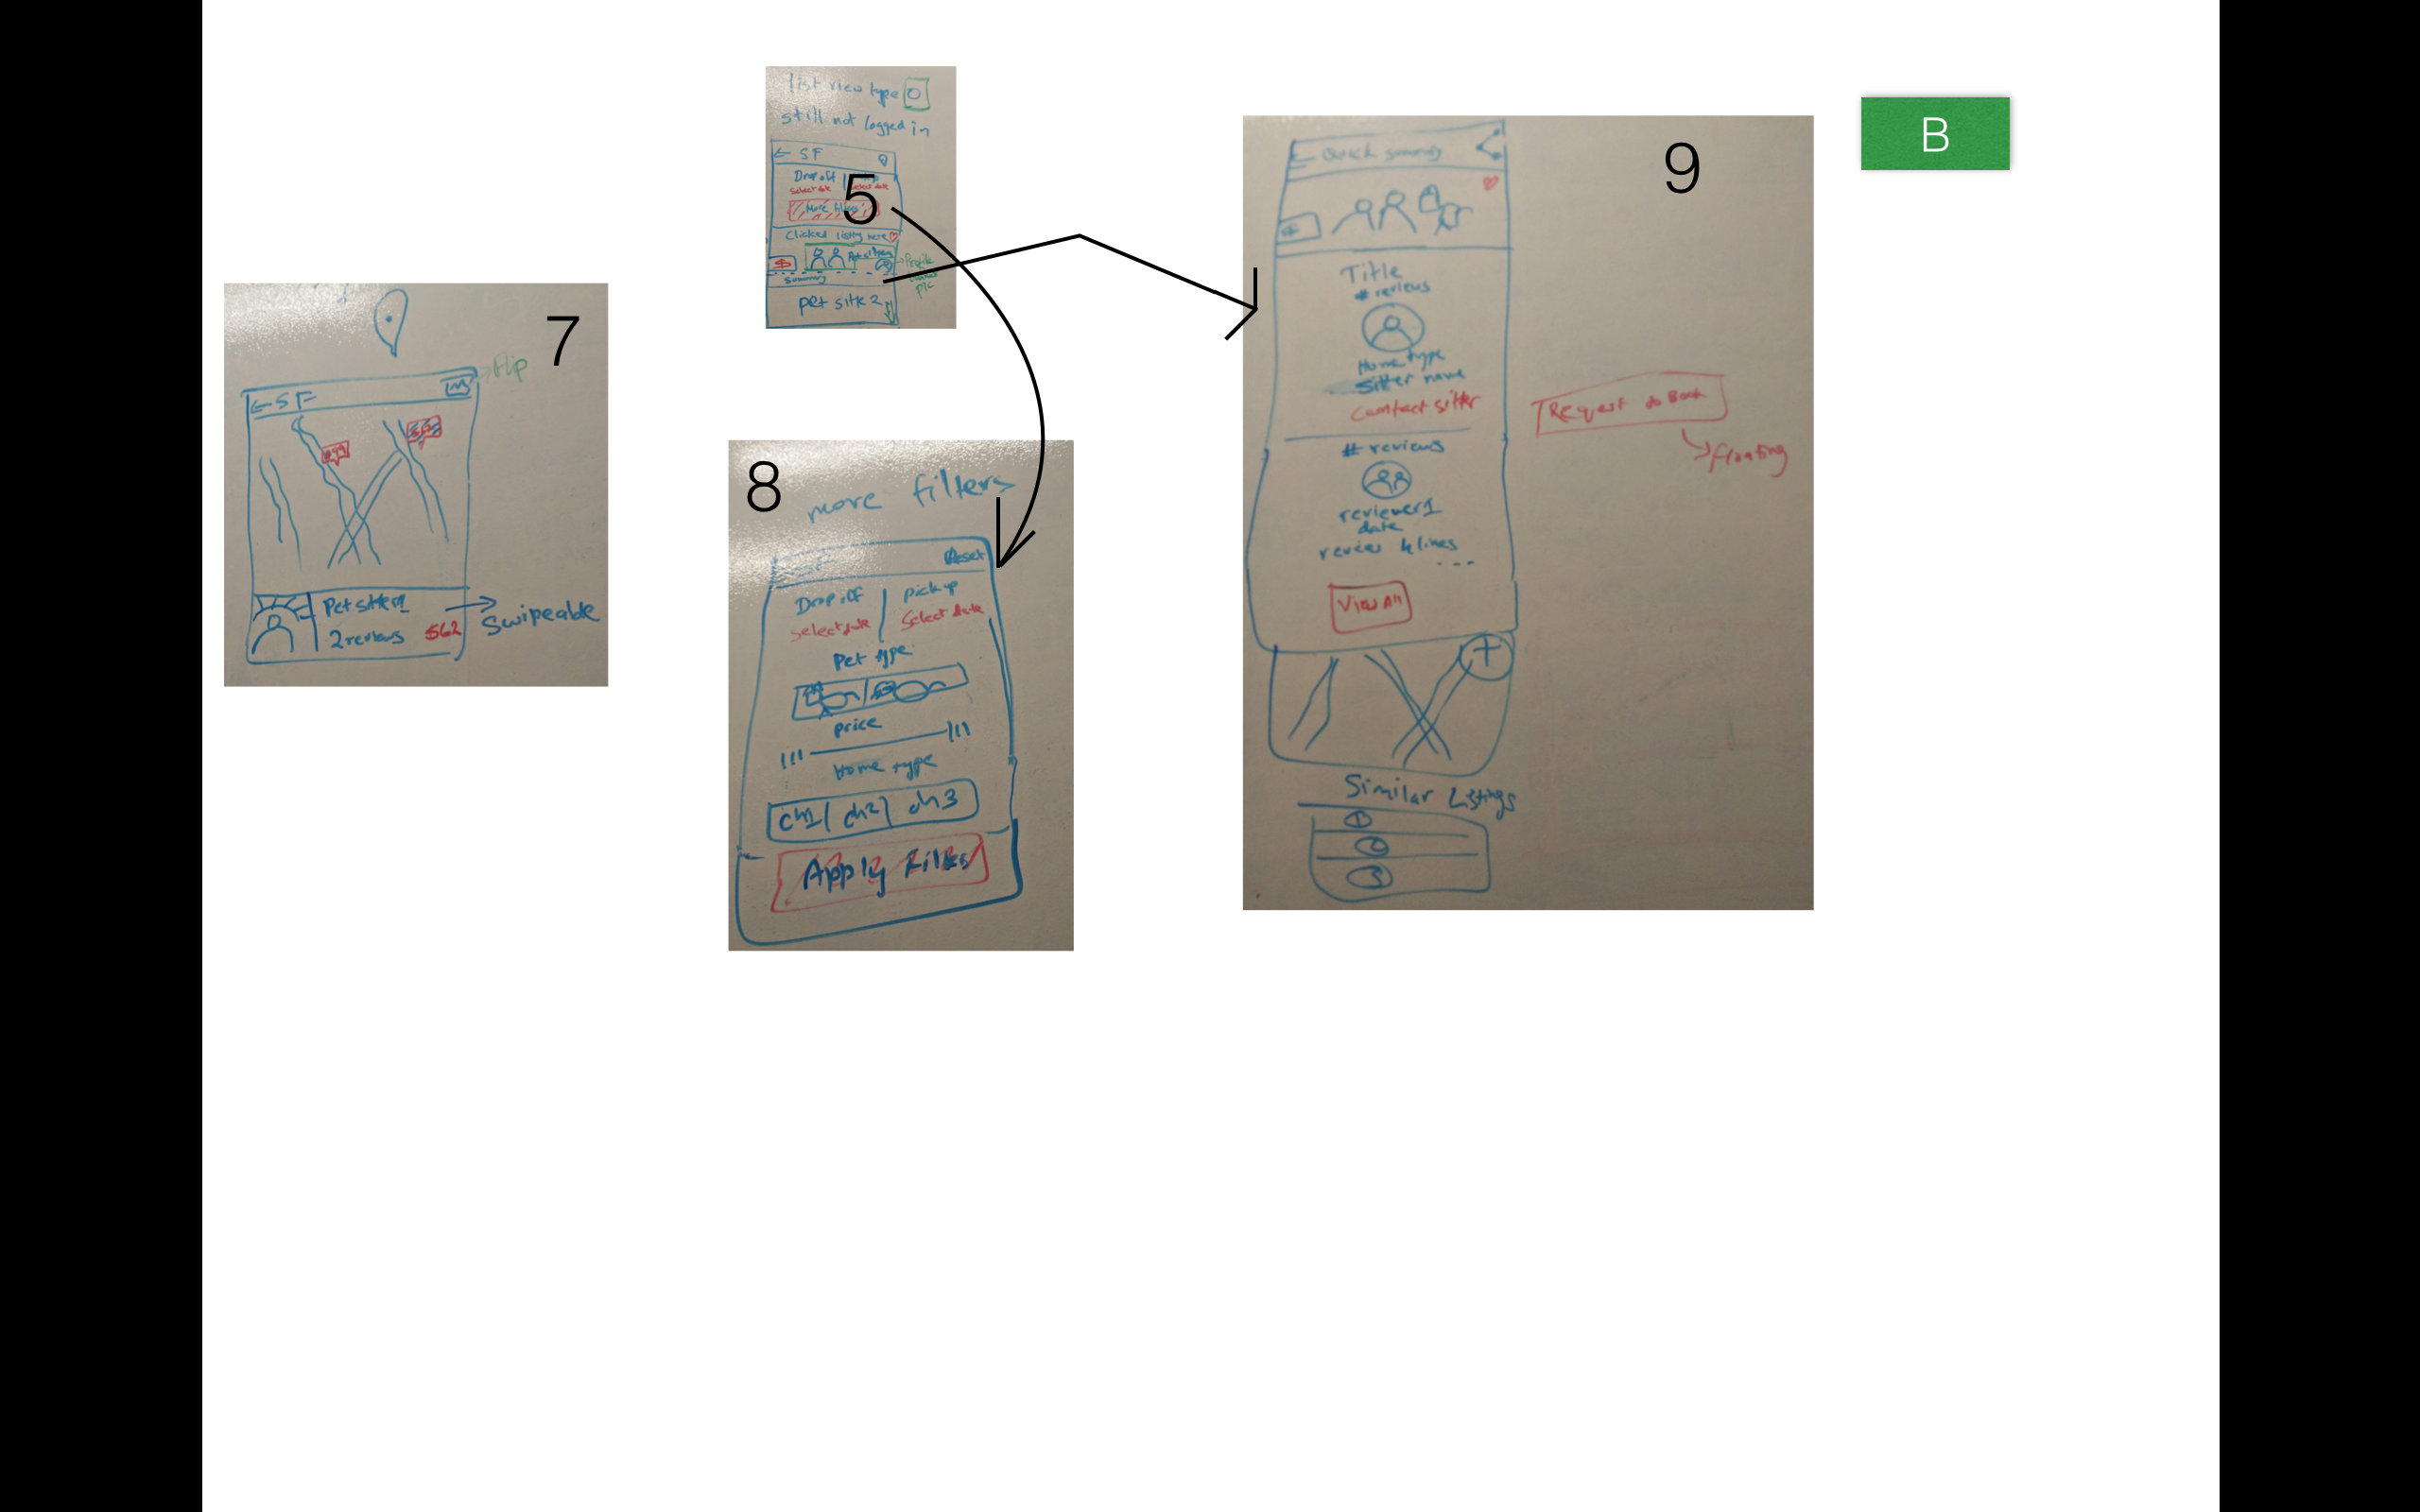 list view type
still not logged in
← SF
Drop off
Select date
select date
More filters
5
Clicked listing here
$
Profile
pic
Summary
pet sitter 2
B
7
flip
← SF
Pet sitter 1
2 reviews $62
Swipeable
8
more filters
SF Reset
Drop off | pick up
Select date Select date
Pet type
price
Home type
ch1 | ch2 | ch3
Apply Filter
9
← Quick summary
Title
# reviews
Home type
Sitter name
Contact sitter
Request to Book
floating
# reviews
reviewer1
date
review 4 lines
...
View All
+
Similar Listings
1
2
3